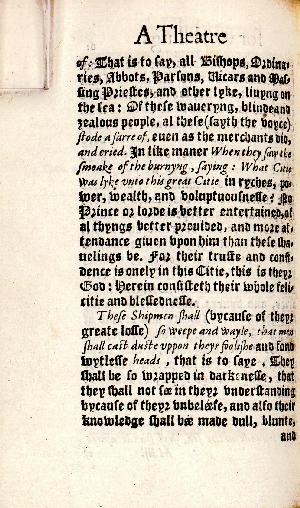 A Theatre
of: That is to say, all Bishops, Ordina-
ries, Abbots, Parsons, Vicars and Mas-
sing Priestes, and other lyke, liuyng on
the sea: Of these waueryng, blinde and
zealous people, al these (sayth the voyce)
stode a farre of, euen as the merchants did,
and cried. In like maner When they saw the
smoake of the burnyng, saying: What Citie
was lyke vnto this great Citie in ryches, po-
wer, wealth, and voluptuousnesse? No
Prince or lorde is better entertained, of
al thyngs better prouided, and more at-
tendance giuen vpon him than these sha-
uelings be. For their truste and confi-
dence is onely in this Citie, this is theyr
God: Herein consisteth their whole feli-
citie and blessednesse.
These Shipmen shall (bycause of theyr
greate losse) so weepe and wayle, that men
shall cast duste vppon theyr foolishe and fond
wytlesse heads, that is to saye, They
shall be so wrapped in darkenesse, that
they shall not sée in theyr vnderstanding
bycause of theyr vnbeléefe, and also their
knowledge shall bée made dull, blunte,
and